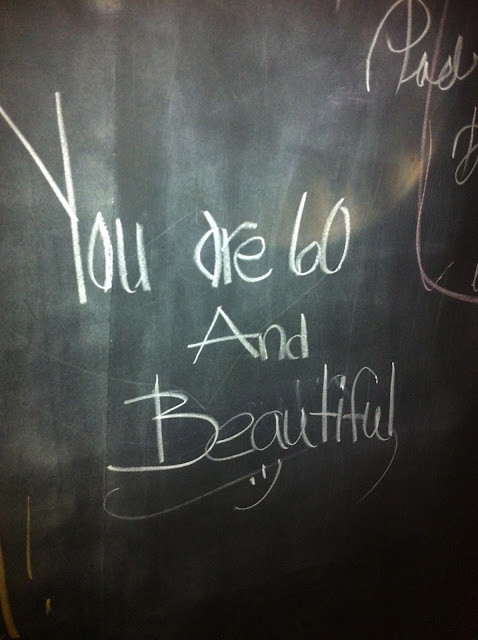 You are 60
And
Beautiful